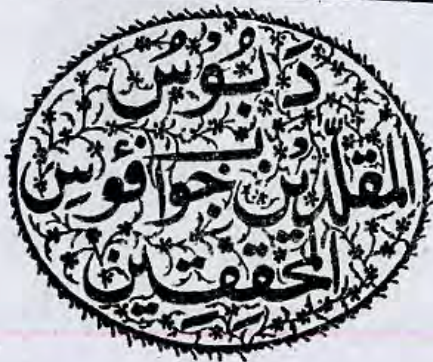 دَبُّوْسُ
المقلّدِیْن جواب فؤسِ
المحققین